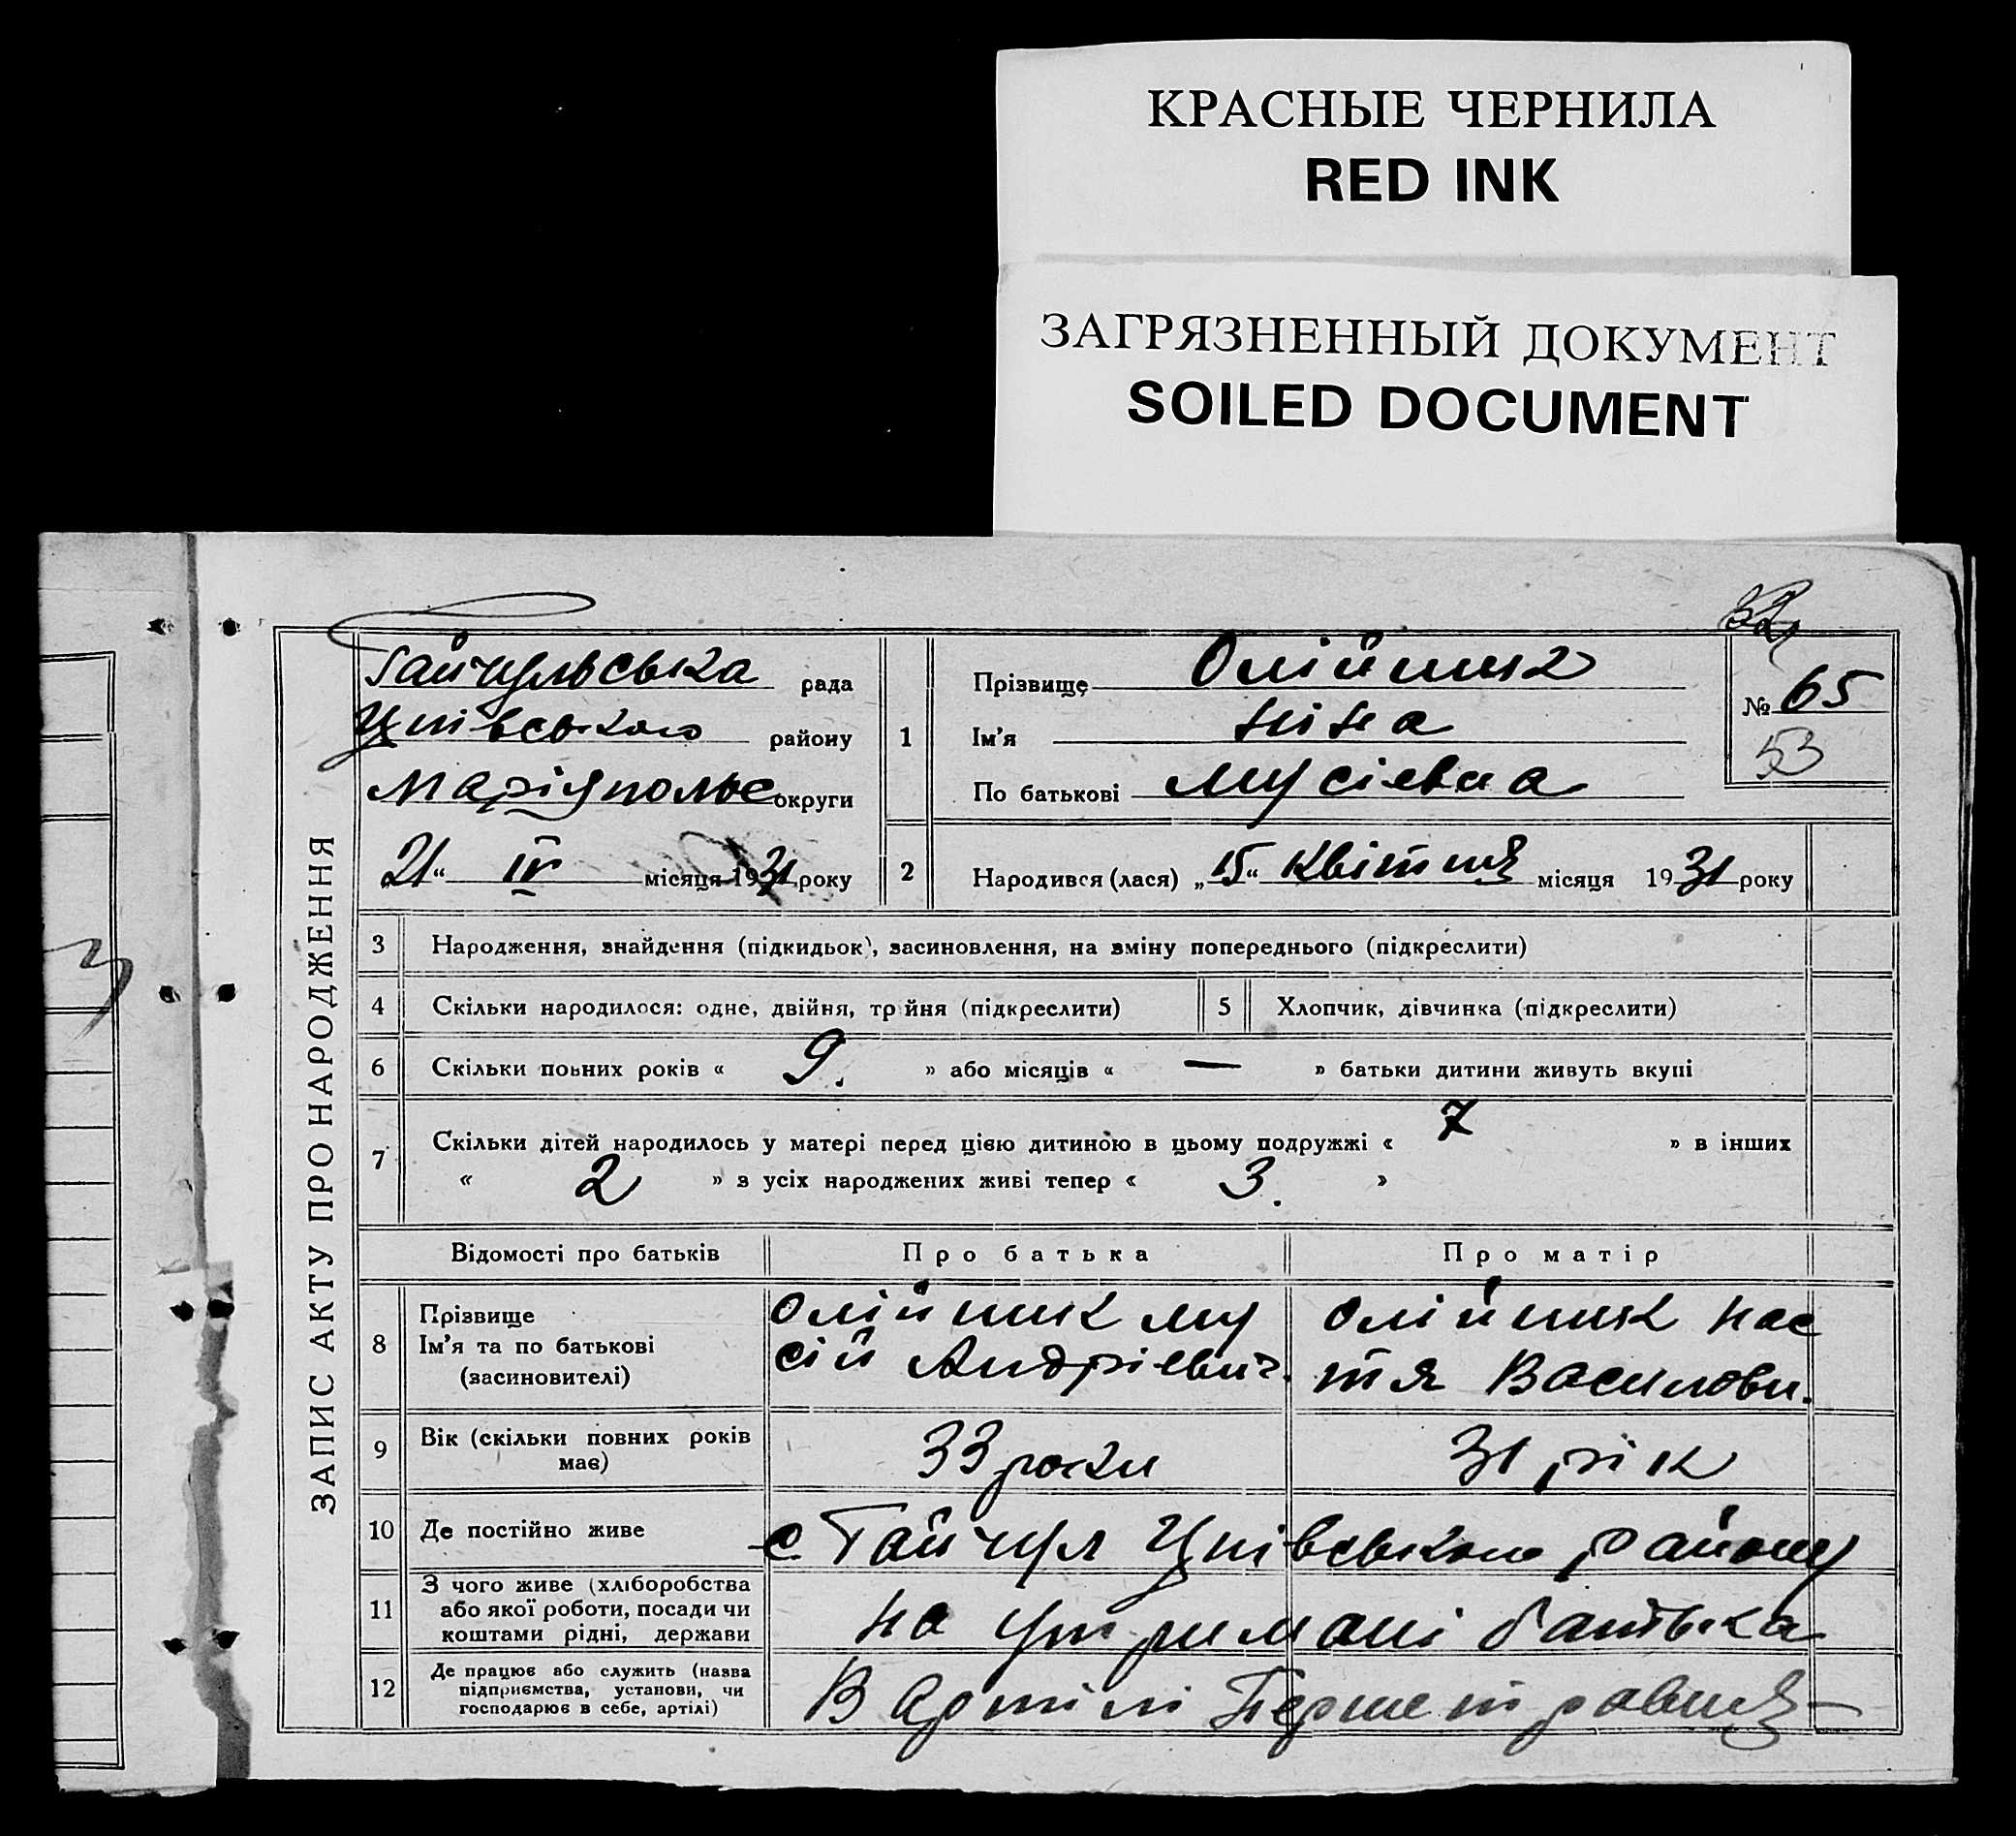 КРАСНЫЕ ЧЕРНИЛА
RED INK
ЗАГРЯЗНЕННЫЙ ДОКУМЕНТ
SOILED DOCUMENT
ЗАПИС АКТУ ПРО НАРОДЖЕННЯ
Гайчульська рада
району
Маріупольс округи
21 “ IV місяця 1931 року
1
Прізвище Олійник
Ім'я Ніна
По батькові Мусіевна
№ 65
53
2 Народився (лася) „15“ Квітня місяця 1931 року
3 Народження, знайдення (підкидьок), засиновлення, на зміну попереднього (підкреслити)
4 Скільки народилося: одне, двійня, трійня (підкреслити)
5 Хлопчик, дівчинка (підкреслити)
6 Скільки повних років « 9. » або місяців « — » батьки дитини живуть вкупі
7 Скільки дітей народилось у матері перед цією дитиною в цьому подружжі « 7 » в інших
« 2 » з усіх народжених живі тепер « 3. »
Відомості про батьків Про батька Про матір
8 Прізвище
Ім'я та по батькові
(засиновителі)
Олійник Му
сій Андріевич.
Олійник Нас
тя Василовн.
9 Вік (скільки повних років
має)
33 роки
31 рік
10 Де постійно живе
с Гайчул району
11 З чого живе (хліборобства
або якої роботи, посади чи
коштами рідні, держави
на утримані батька
12 Де працює або служить (назва
підприємства, установи, чи
господарює в себе, артілі)
В Артілі Перше травня